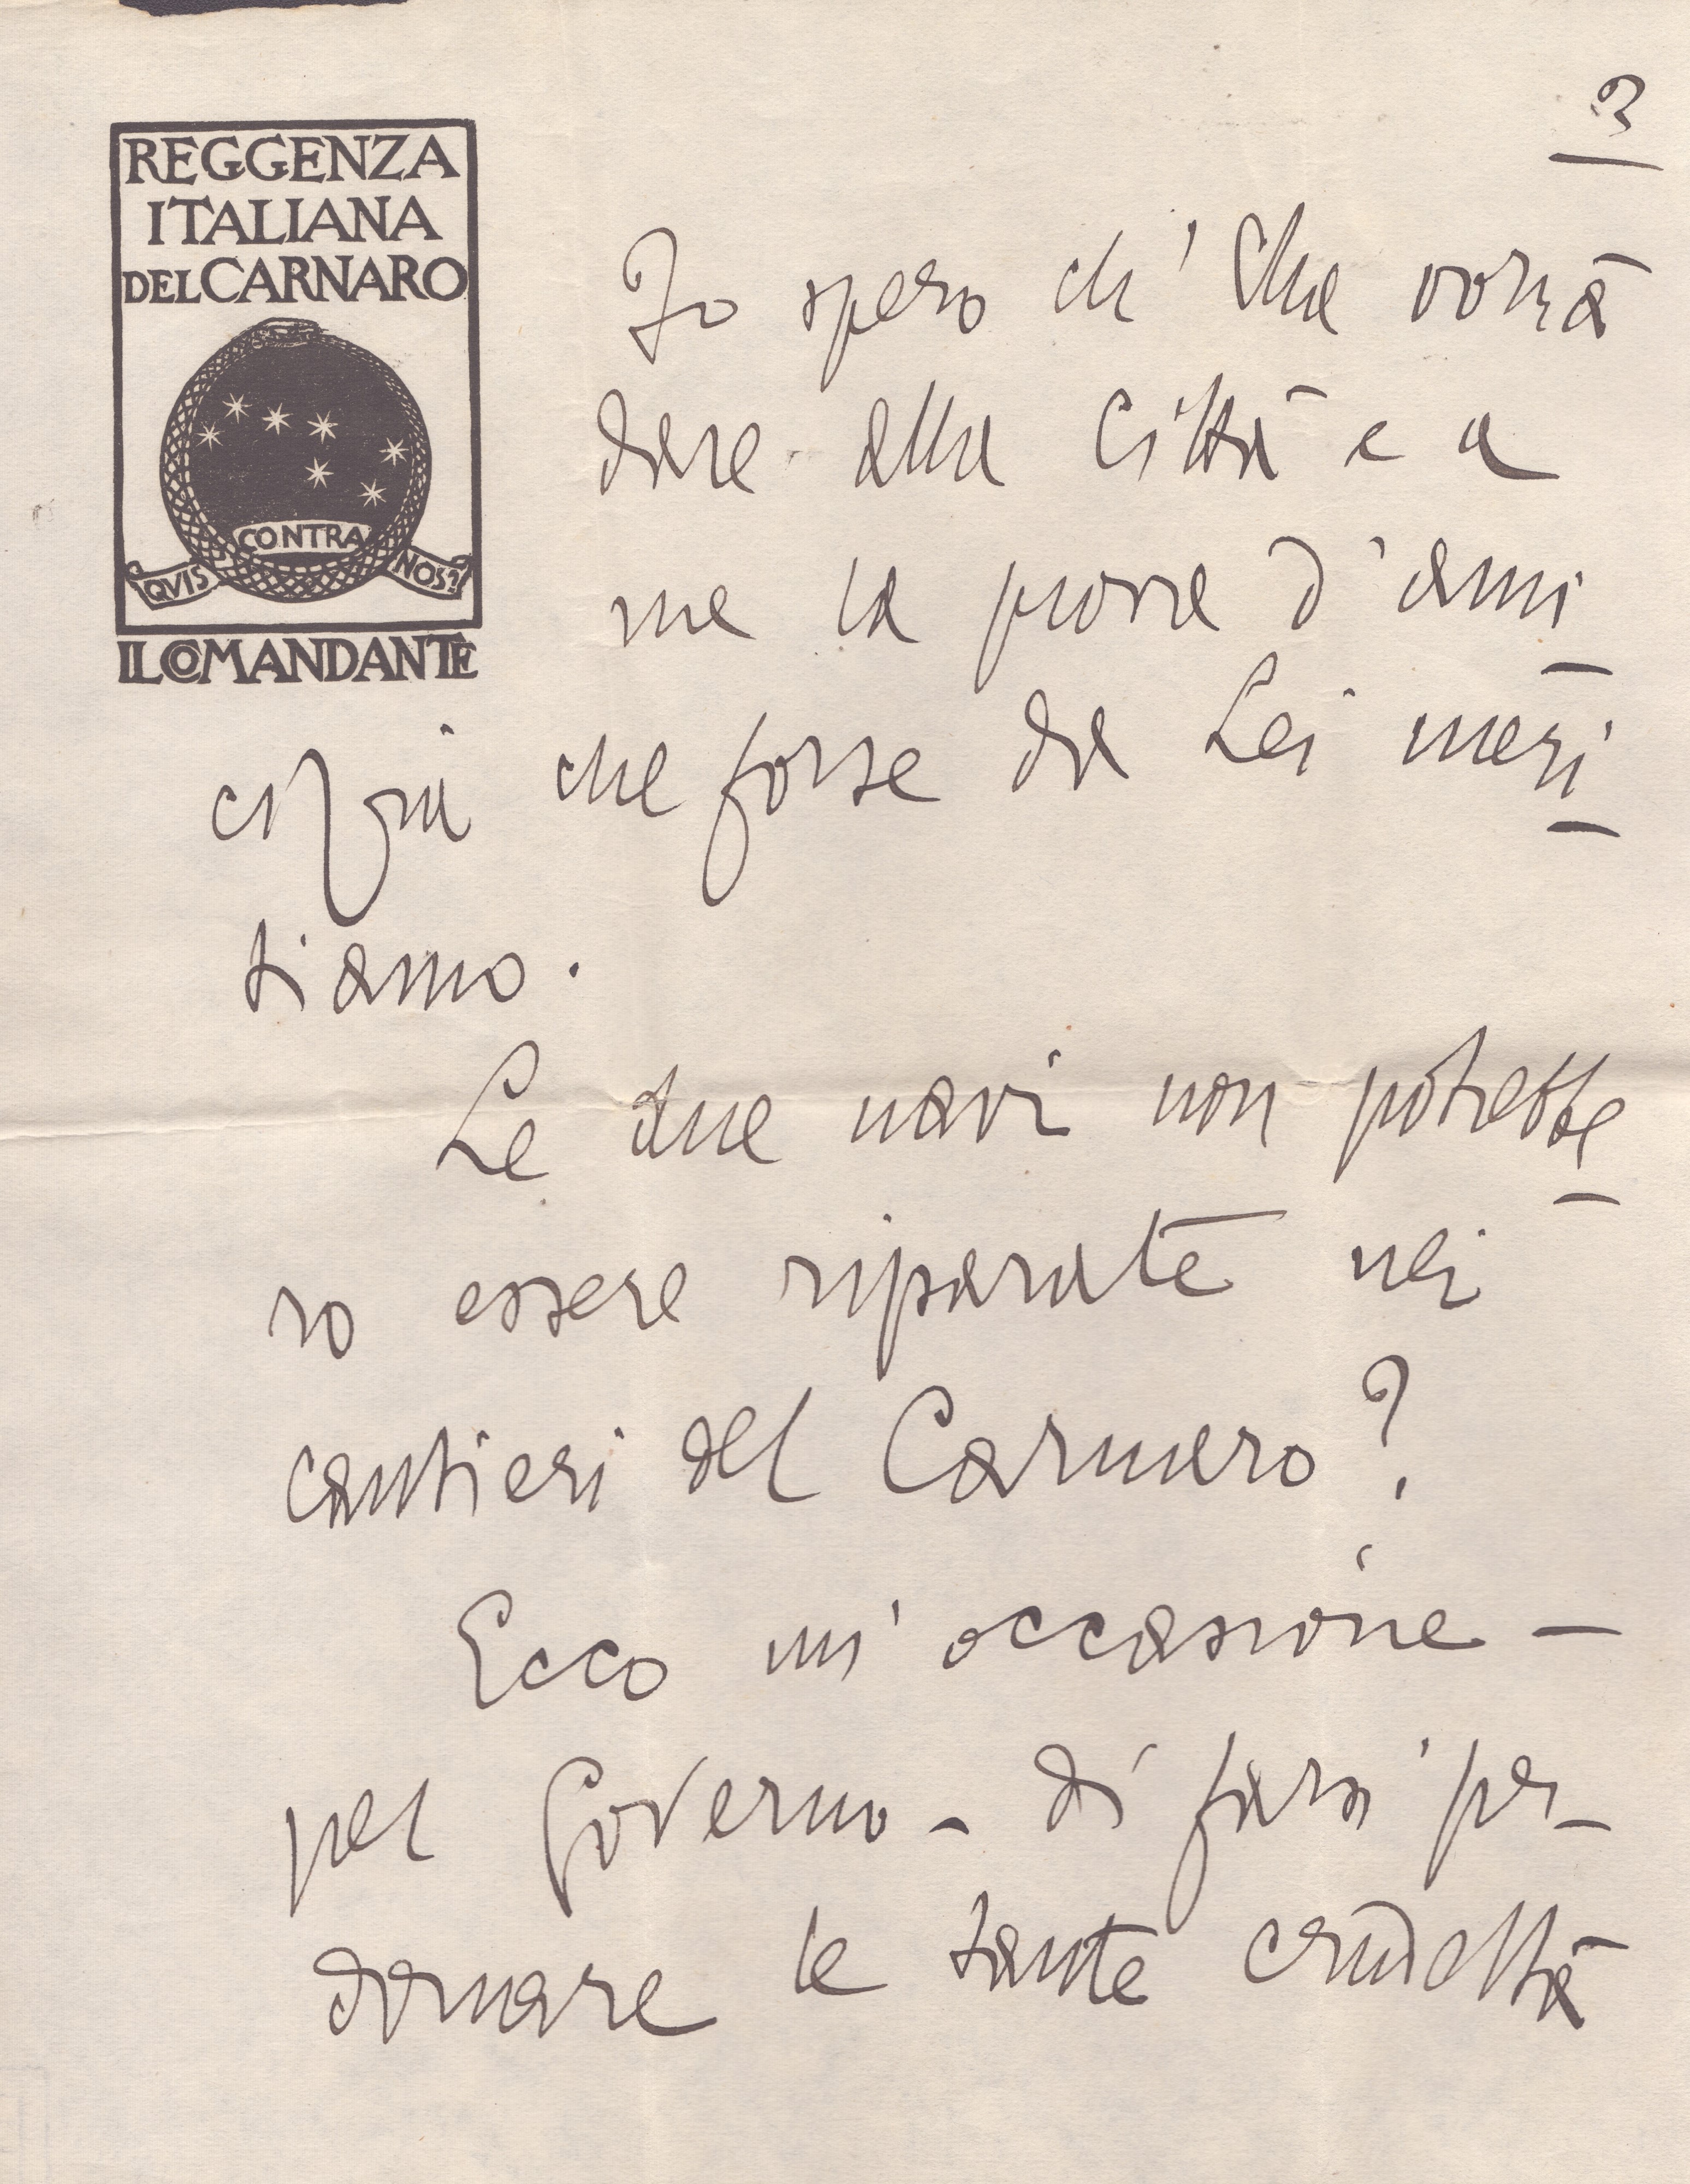 3
REGGENZA
ITALIANA
DEL CARNARO
QVIS CONTRA NOS?
IL COMANDANTE
Io spero ch' Ella vorrà
dare alla Città e a
me la prova d'ami
cizia che forse da Lei meri
tiamo.
Le due navi non potrebbe
ro essere riparate nei
cantieri del Carnaro?
Ecco un'occasione –
pel Governo – di farsi per–
donare le tante crudeltà